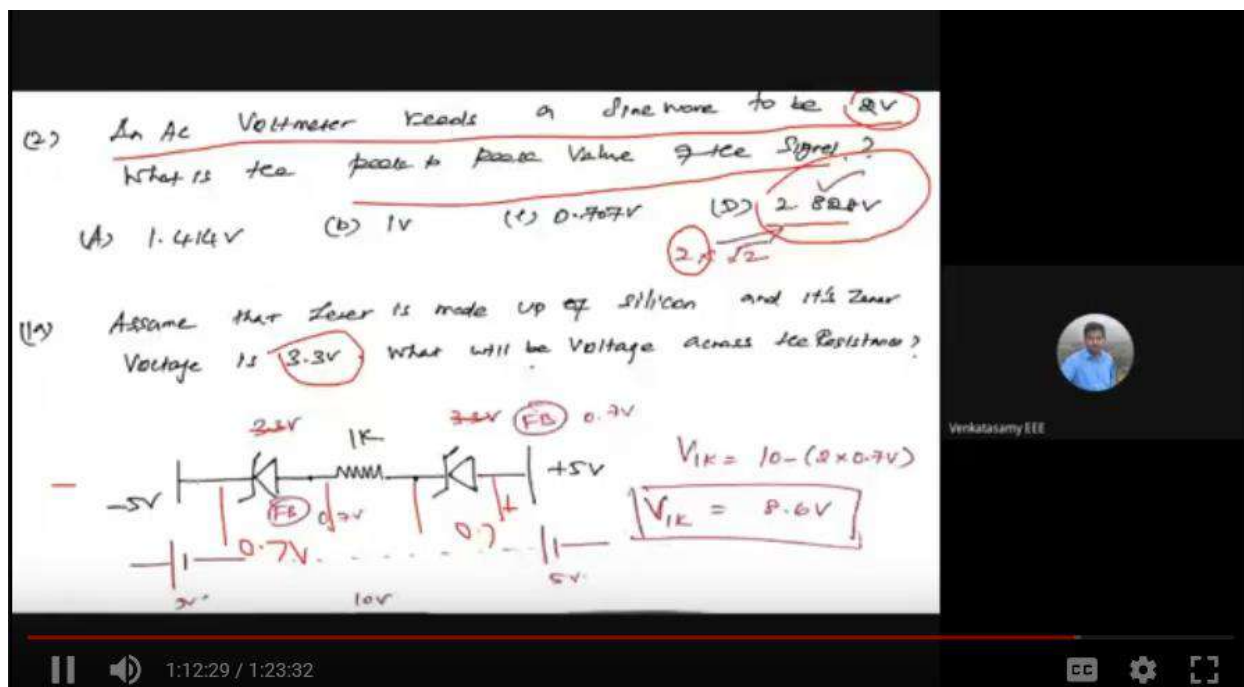 (2) An Ac Voltmeter reads a sine wave to be 2V
What is the peak to peak value of the signal?
(A) 1.414V (b) 1V (c) 0.707V (D) 2.828V
2 x √2
Assume that zener is made up of silicon and it's Zener
Voltage is 3.3V What will be Voltage across the Resistance?
3.3V 1K 3.3V FB 0.7V
-5V +5V
FB 0.7V
0.7V 0.7
5V
10V
V1K = 10-(2x0.7V)
V1K = 8.6V
Venkatasamy EEE
1:12:29 / 1:23:32
CC